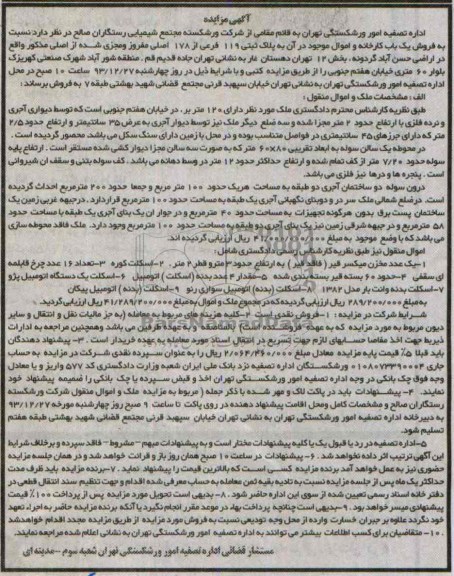 آگهی مزایده
اداره تصفیه امور ورشکستگی تهران به قائم مقامی از شرکت ورشکسته مجتمع شیمیایی رستگاران صالح در نظر دارد نسبت
به فروش یک باب کارخانه و اموال موجود در آن به پلاک ثبتی ۱۱۹ فرعی از ۱۷۸ اصلی مفروز ومجزی شده از اصلی مذکور واقع
در اراضی حسن آباد گردونه، بخش ۱۲ تهران دهستان غار به نشانی تهران جاده قدیم قم، منطقه شور آباد شهرک صنعتی کهریزک
بلوار ۶۰ متری خیابان هفتم جنوبی را از طریق مزایده کتبی و با شرایط ذیل در روز چهارشنبه ۹۳/۱۲/۲۷ ساعت ۱۰ صبح در محل
اداره تصفیه امور ورشکستگی تهران به نشانی تهران خیابان سپهبد قرنی مجتمع قضائی شهید بهشتی طبقه ۷ به فروش برساند:
الف: مشخصات ملک و اموال منقول:
طبق نظریه کارشناس محترم دادگستری ملک مورد نظر دارای ۱۲۰ متر بر، در خیابان هفتم جنوبی است که توسط دیواری آجری
و نرده فلزی با ارتفاع حدود ۲ متر مجزا شده و سه ضلع دیگر ملک نیز توسط دیوار آجری به عرض ۳۵ سانتیمتر و ارتفاع حدود ۲/۵
متر که دارای جرزهای ۴۵ سانتیمتری در فواصل متناسب بوده و در محل با زمین دارای سنگ سکل می باشد، محصور گردیده است.
در محوطه یک سالن سوله به ابعاد تقریبی ۸۰×۶۰ متر که به صورت سه سالن مجزا دیوار کشی شده مستقر است. ارتفاع پایه
سوله حدود ۷/۲۰ متر از کف تمام شده و ارتفاع حداکثر حدود ۱۲ متر در وسط دهانه می باشد. کف سوله بتنی و سقف آن شیروانی
است. پنجره ها و درها نیز فلزی می باشد.
درون سوله دو ساختمان آجری دو طبقه به مساحت هریک حدود ۱۰۰ متر مربع و جمعا حدود ۲۰۰ مترمربع احداث گردیده
است. درضلع شمالی ملک سر در و دوبنای نگهبانی آجری یک طبقه به مساحت حدود ۱۰۰ مترمربع قراردارد. درجبهه غربی زمین یک
ساختمان پست برق بدون هرگونه تجهیزات به مساحت حدود ۴۰ مترمربع و در جوار آن یک بنای آجری یک طبقه با مساحت حدود
۵۸ مترمربع و در جبهه شرقی زمین نیز یک بنای آجری دو طبقه به مساحت حدود ۱۰۰ مترمربع وجود دارد. ملک فاقد محوطه سازی
می باشد که با وضع موجود به مبلغ ریال ارزیابی گردیده اند.
اموال منقول نیز طبق نظریه کارشناس رسمی دادگستری شامل:
۱-یک عدد مخزن میکسر قیر (فاقد قیر) به ارتفاع حدود ۳ مترو قطر ۲ متر. ۲-اسکلت کوره ۳-تعداد ۱۶ عدد چرخ قابلمه
ای سقفی ۴-حدود ۶۰ بسته قیر بسته بندی شده ۵-مقدار ۴ عدد بدنه (اسکلت) اتومبیل ۶-اسکلت یک دستگاه اتومبیل پژو
۷-اسکلت بدنه وانت بار مدل ۱۳۸۲ ۸-اسکلت (بدنه) اتومبیل سواری رنو ۹-اسکلت (بدنه) اتومبیل پیکان
به مبلغ ۲۸۹/۲۰۰/۰۰۰ ریال ارزیابی گردیده که در مجموع ملک و اموال به مبلغ ۴۱/۲۸۹/۲۰۰/۰۰۰ ریال ارزیابی گردید.
شرایط شرکت در مزایده: ۱- فروش نقدی است ۲-کلیه هزینه های مربوط به معامله (به جز مالیات نقل و انتقال و سایر
دیون مربوط به مورد مزایده که به عهده فروشنده است) بالمناصفه به عهده طرفین می باشد وهمچنین مراجعه به ادارات
ذیربط جهت اخذ مفاصا حسابهای لازم جهت تسریع در انتقال اسناد مورد معامله به عهده خریدار است. ۳-پیشنهاد دهندگان
باید قبلا ۵٪ قیمت پایه مزایده معادل مبلغ ۲/۰۶۴/۴۶۰/۰۰۰ ریال را به عنوان سپرده نقدی شرکت در مزایده به حساب
جاری ۰۱۰۸۰۷۳۳۹۰۰۰۴ ورشکستگان اداره تصفیه نزد بانک ملی ایران شعبه وزارت دادگستری کد ۵۷۷ واریز و یا معادل
وجه فوق چک بانکی در وجه اداره تصفیه امور ورشکستگی تهران اخذ و قبض سپرده یا چک بانکی را ضمیمه پیشنهاد خود
نمایند. ۴- پیشنهادات باید در پاکت لاک و مهر شده با ذکر جمله (مربوط به مزایده ملک و اموال منقول شرکت ورشکسته
رستگاران صالح و مشخصات کامل ومحل اقامت پیشنهاد دهنده در روی پاکت تا ساعت ۹ صبح روز چهارشنبه مورخه ۹۳/۱۲/۲۷
به دبیرخانه اداره تصفیه امور ورشکستگی تهران به نشانی تهران خیابان سپهبد قرنی مجتمع قضائی شهید بهشتی طبقه هفتم
تسلیم شود.
۵-اداره تصفیه در رد یا قبول یک یا کلیه پیشنهادات مختار است و به پیشنهادات مبهم - مشروط - فاقد سپرده و برخلاف شرایط
این آگهی ترتیب اثر داده نخواهد شد. ۶- پیشنهادات در ساعت ۱۰ صبح همان روز باز و قرائت خواهد شد و در همان جلسه مزایده
حضوری نیز به عمل خواهد آمد برنده مزایده کسی است که بالاترین قیمت را پیشنهاد نماید. ۷-برنده مزایده باید ظرف مدت
حداکثر یک ماه پس از جلسه مزایده نسبت به تادیه بقیه ثمن معامله به حساب معرفی شده اقدام و جهت تنظیم سند انتقال قطعی در
دفتر خانه اسناد رسمی تعیین شده از سوی این اداره حاضر شود. ۸- بدیهی است تحویل مورد مزایده پس از پرداخت ۱۰۰٪ قیمت
پیشنهادی میسر خواهد بود. ۹-بدیهی است چنانچه پرداخت بهاء در موعد مقرر انجام نگیرد یا آنکه برنده مزایده حاضر به اجراء تعهد
خود نگردد علاوه بر جبران خسارت وارده از محل وجه تودیعی نسبت به فروش مورد مزایده از طریق مزایده مجدد اقدام خواهدشد
۱۰- متقاضیان برای کسب اطلاعات بیشتر می توانند به اداره تصفیه امور ورشکستگی تهران به نشانی اعلام شده مراجعه نمایند.
مستشار قضائی اداره تصفیه امور ورشکستگی تهران شعبه سوم -مدینه ای